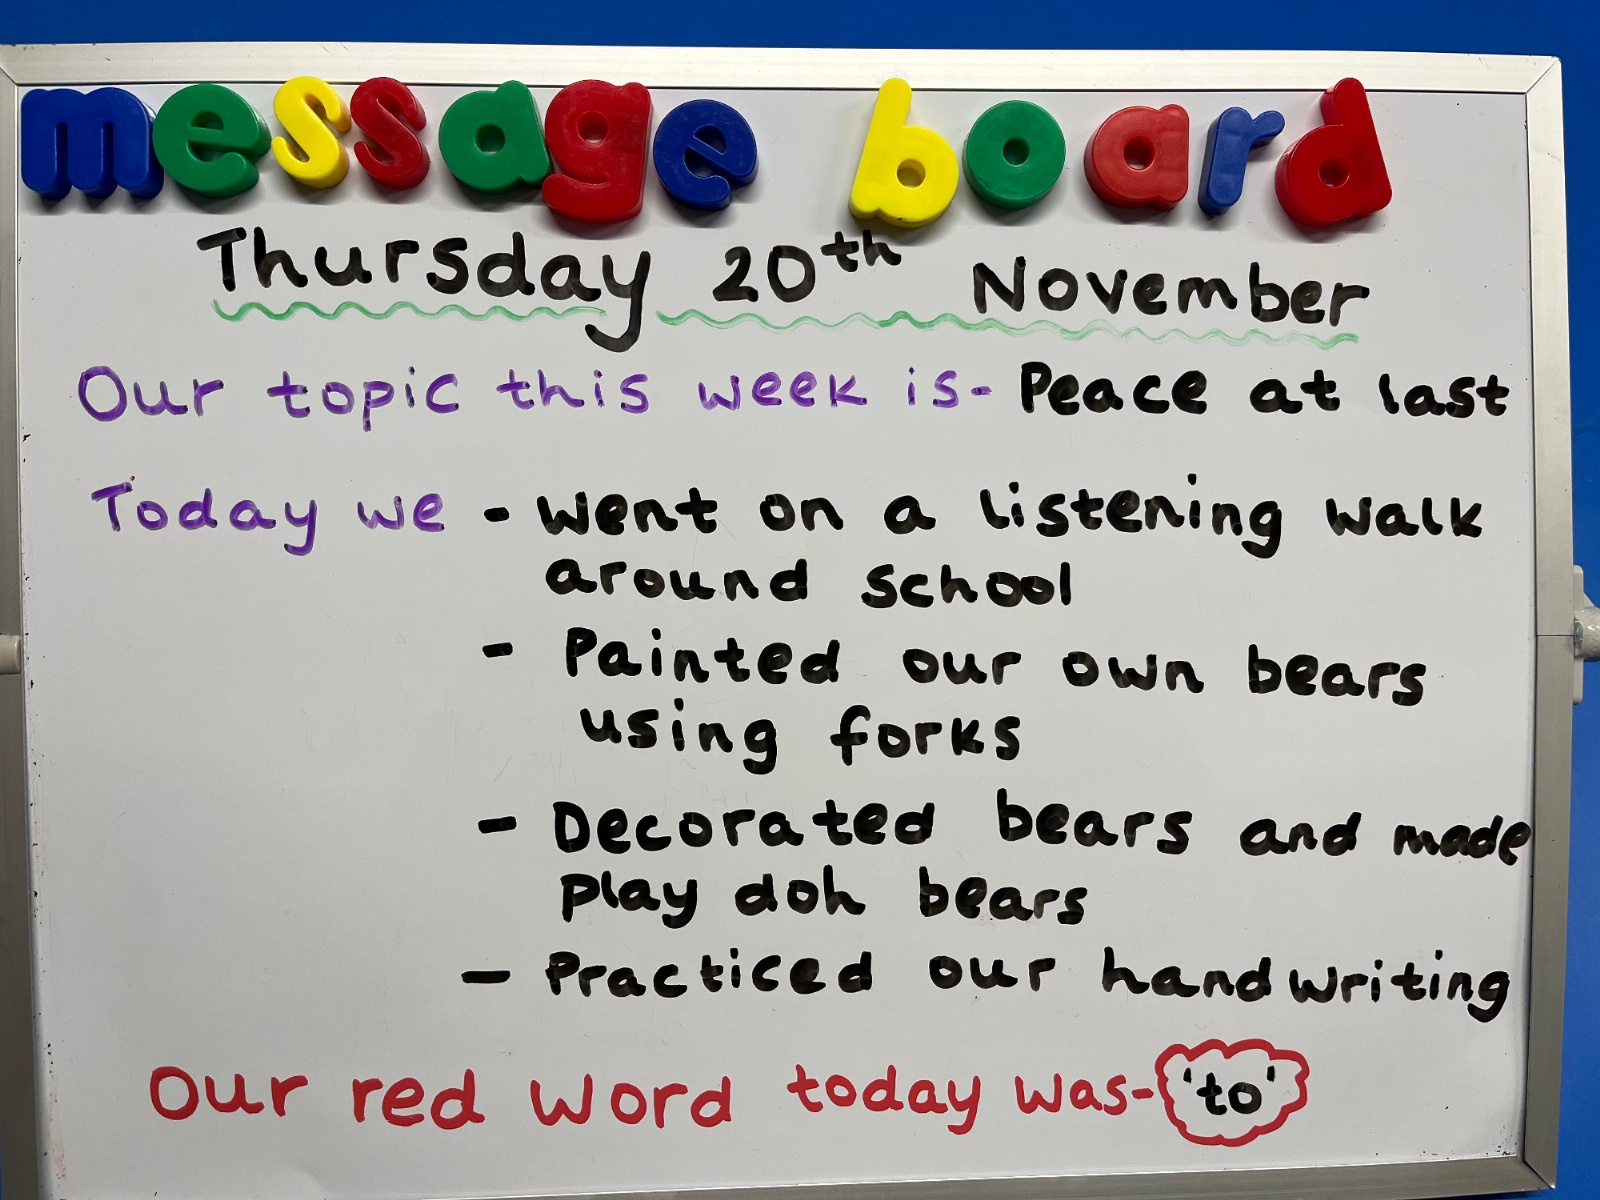 message board
Thursday 20th November
Our topic this week is- Peace at last
Today we - Went on a listening walk
around school
- Painted our own bears
using forks
- Decorated bears and made
play doh bears
- Practiced our handwriting
Our red word today was- 'to'